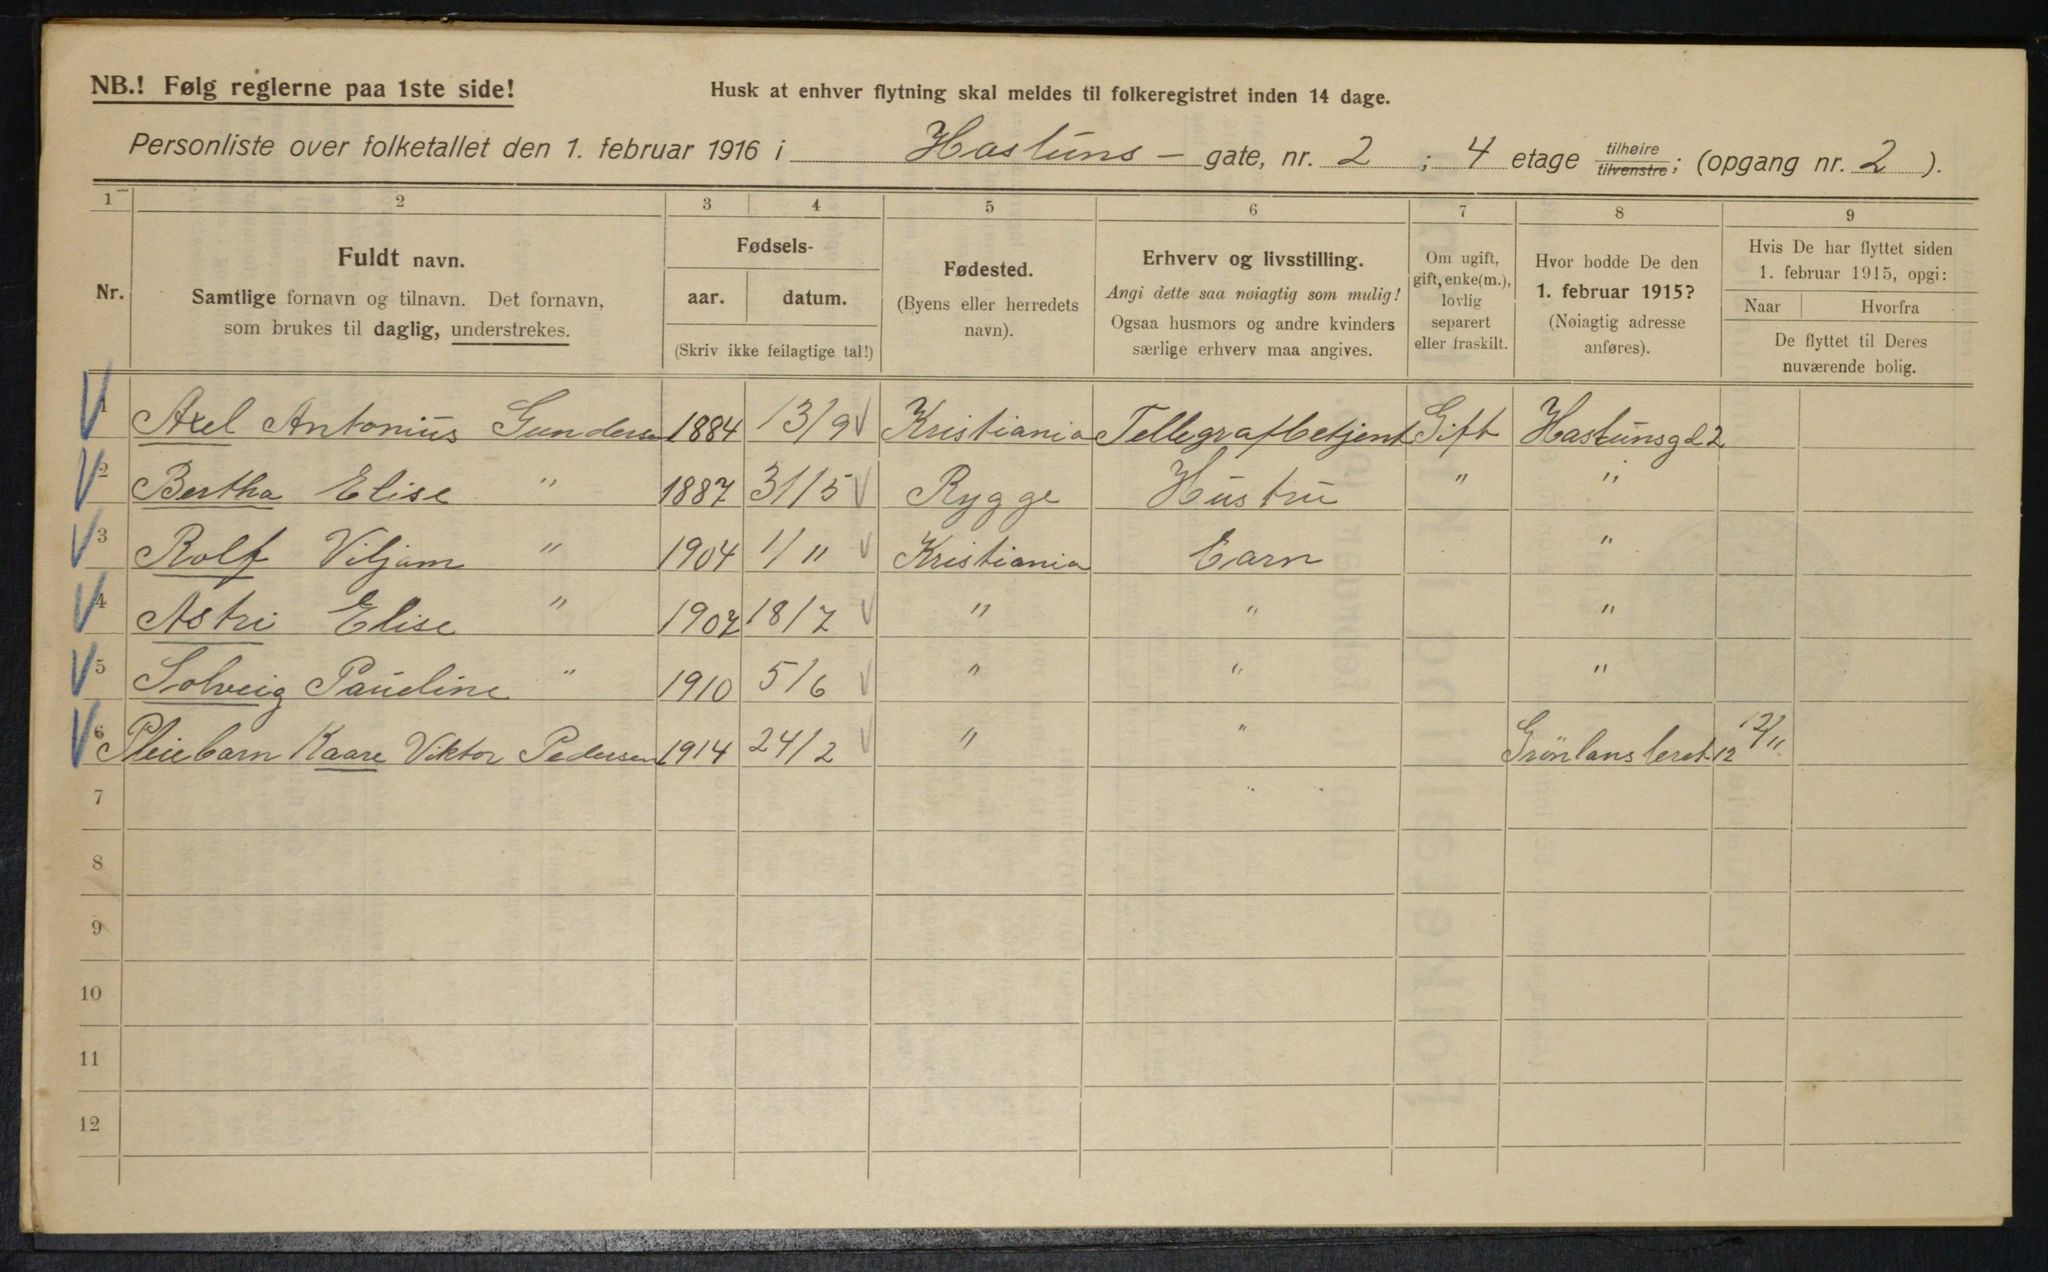 NB.! Følg reglerne paa 1ste side!
Husk at enhver flytning skal meldes til folkeregistret inden 14 dage.
Personliste over folketallet den 1. februar 1916 i Hastuns - gate, nr. 2 ; 4 etage tilhøire tilvenstre; (opgang nr. 2 ).
1 2 3 4 5 6 7 8 9
Nr.
Fuldt navn.
Samtlige fornavn og tilnavn. Det fornavn,
som brukes til daglig, understrekes.
Fødsels-
aar. datum.
(Skriv ikke feilagtige tal!)
Fødested.
(Byens eller herredets
navn).
Erhverv og livsstilling.
Angi dette saa nøiagtig som mulig!
Ogsaa husmors og andre kvinders
særlige erhverv maa angives.
Om ugift,
gift, enke(m.),
lovlig
separert
eller fraskilt.
Hvor bodde De den
1. februar 1915?
(Nøiagtig adresse
anføres).
Hvis De har flyttet siden
1. februar 1915, opgi:
Naar Hvorfra
De flyttet til Deres
nuværende bolig.
1 Axel Antonius Gundersen 1884 13/9 Kristiania Tellegrafbetjent Gift Hastunsgd 2
2 Bertha Elise " 1887 31/5 Rygge Hustru " "
3 Rolf Viljam " 1904 1/11 Kristiania Barn "
4 Astri Elise " 1907 18/7 " " "
5 Solveig Pauline " 1910 5/6 " " "
6 Pleiebarn Kaare Viktor Pedersen 1914 24/2 " " Grönlansleret 12 12/11
7
8
9
10
11
12